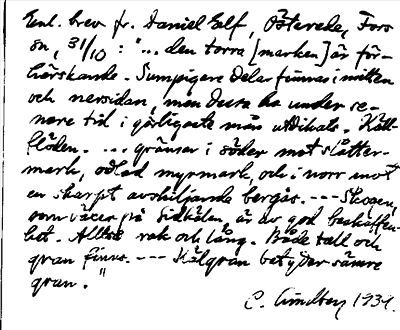 Enl. brev fr. Daniel Elf, Österede, Fors
sn, 31/10 : "... den torra [marken] är för-
härskande. Sumpigare delar finnas i mitten
och nersidan, men dessa ha under se-
nare tid i görligaste mån utdikats. Käll-
flöden. ... gränsar i söder mot slåtter-
mark, odlad myrmark, och i norr mot
en skarpt avskiljande bergås. --- Skogen,
som växer på Sidkälen är av god beskaffen-
het. Alltså rak och lång. Både tall och
gran finns. --- Kälgran betyder sämre
gran."
C. Lindberg 1939.